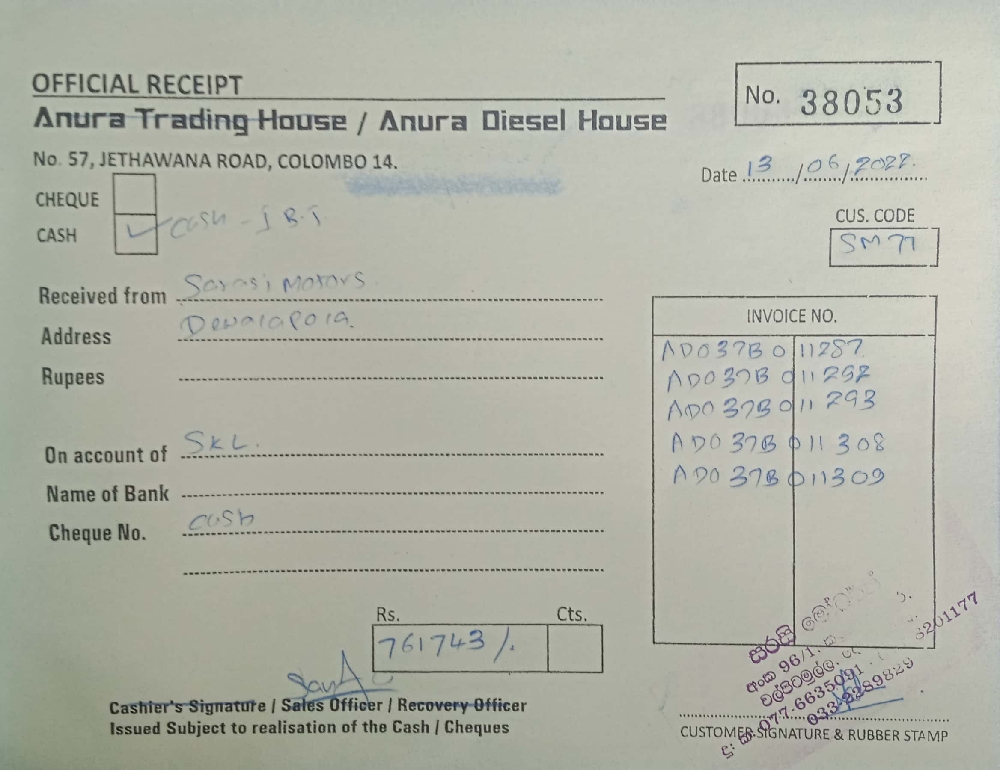 OFFICIAL RECEIPT
Anura Trading House / Anura Diesel House
No. 38053
No. 57, JETHAWANA ROAD, COLOMBO 14.
Date 13/06/2022.
CHEQUE
CASH ✓ Cash - I B.T
CUS. CODE
SM 77
Received from Sarasi Motors
Address Dewalapola
Rupees
On account of SKL.
Name of Bank
Cheque No. cash
INVOICE NO.
AD037B 011287
AD037B 011292
AD037B 011293
AD037B 011308
AD037B 011309
Rs. Cts.
761743/.
Cashier's Signature / Sales Officer / Recovery Officer
Issued Subject to realisation of the Cash / Cheques
සරසි
අංක 96/1,
077-6635091
3201177
033-2289829
CUSTOMER SIGNATURE & RUBBER STAMP